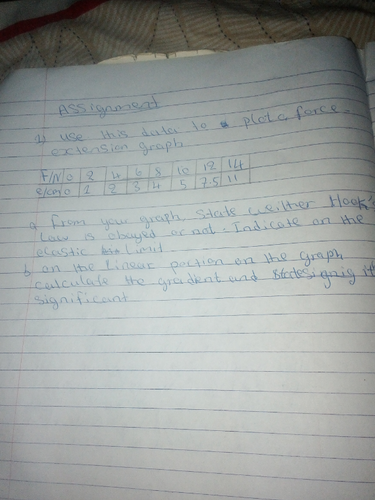 Assignment
1) use this data to plot a force-
extension graph
F/N 0 2 4 6 8 10 12 14
e/cm 0 1 2 3 4 5 7.5 11
a, From your graph, state weither Hook's
Law is obayed or not. Indicate on the
elastic limit
b, on the Linear portion on the graph
calculate the gradient and
significant